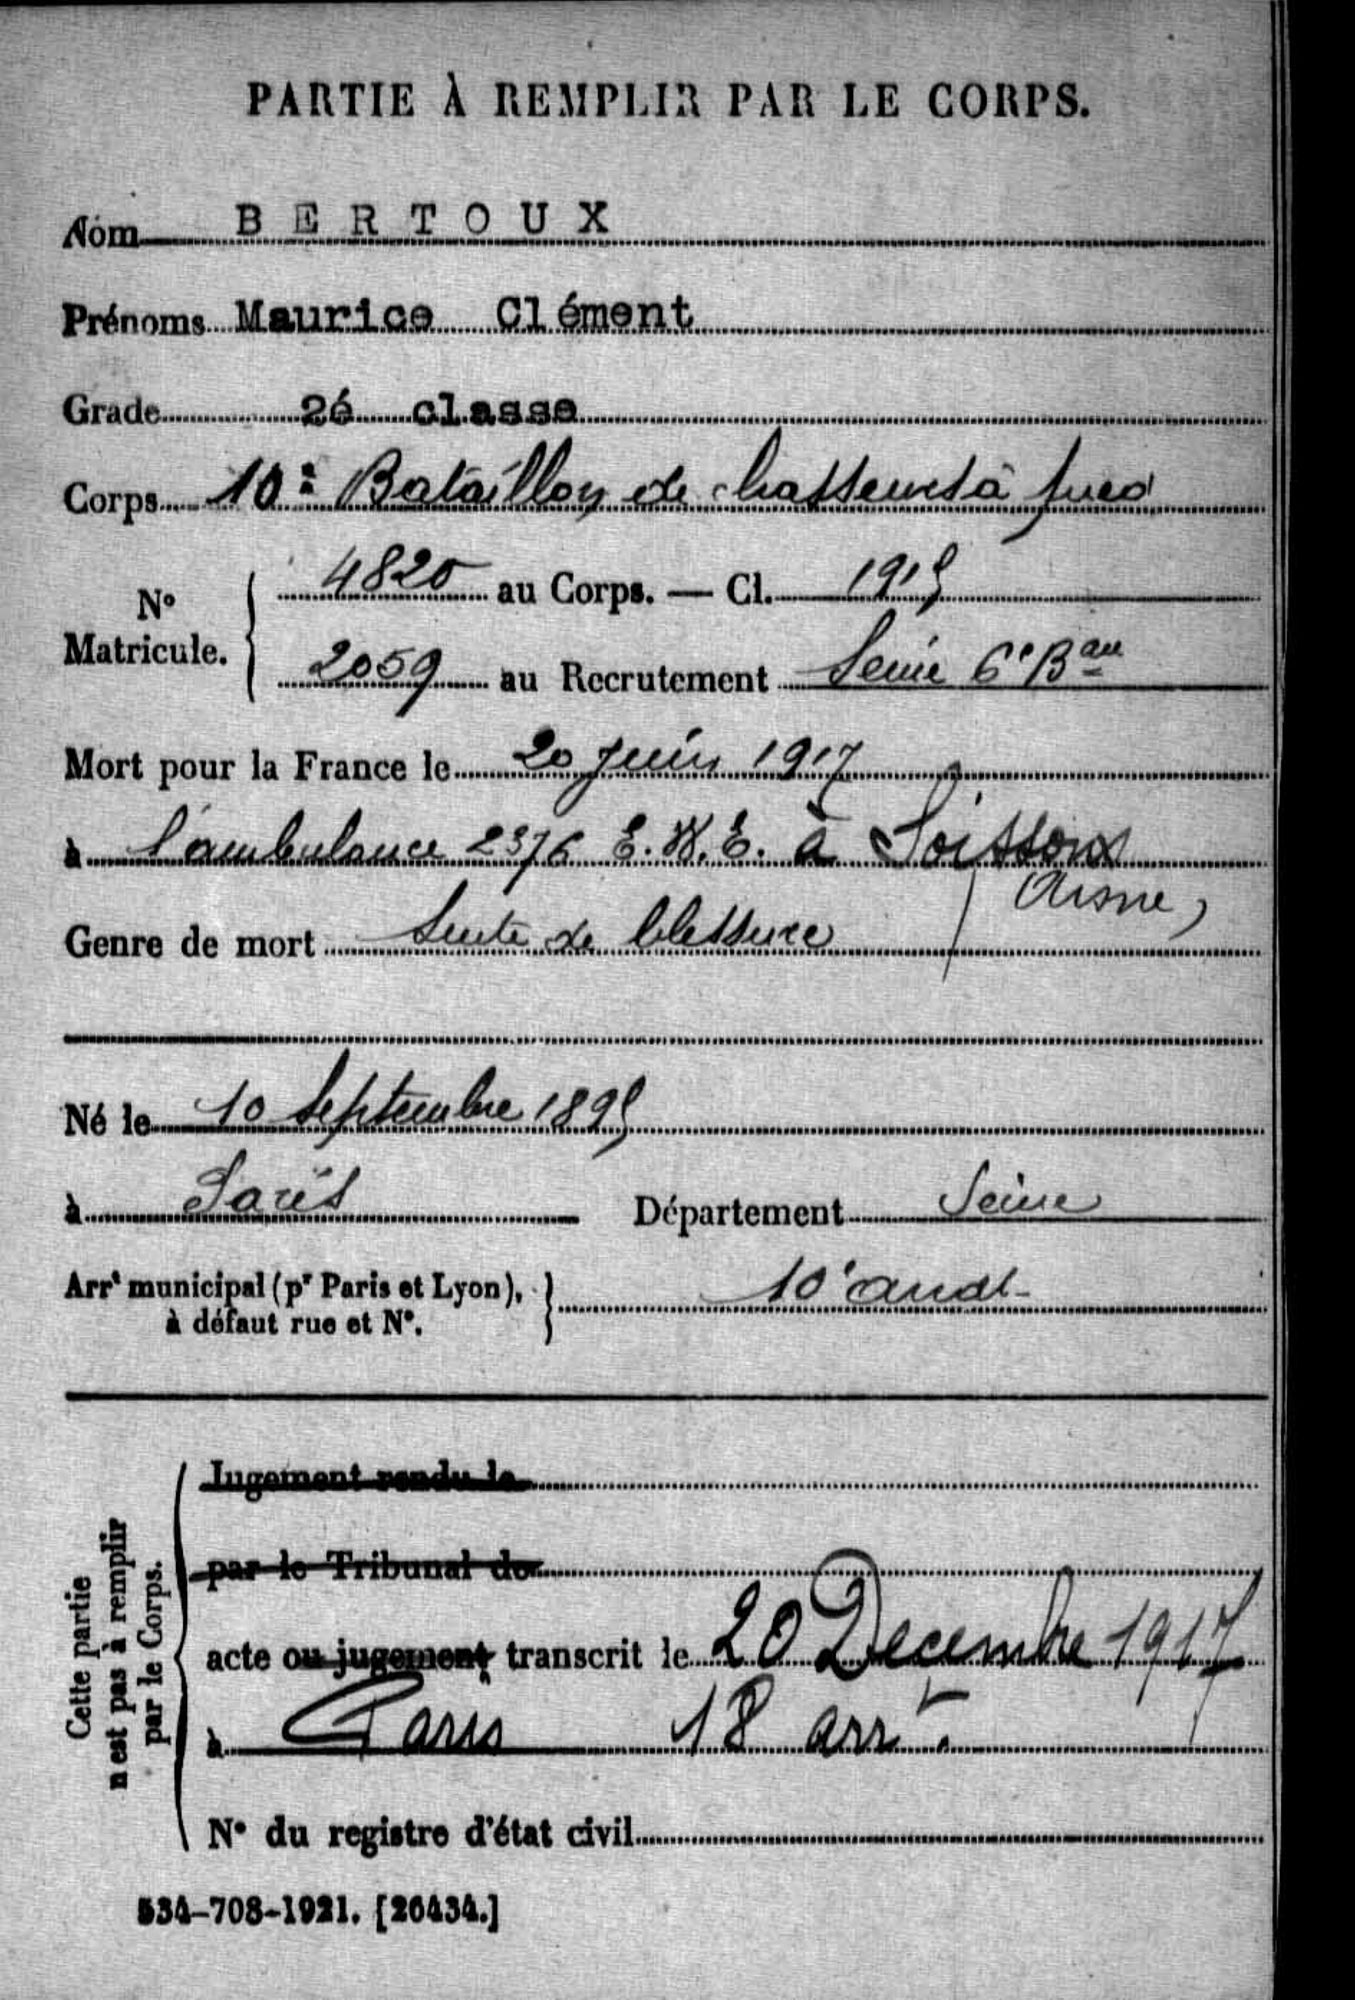 PARTIE À REMPLIR PAR LE CORPS.
Nom BERTOUX
Prénoms Maurice Clément
Grade 2é classe
Corps 10e Bataillon de chasseurs à pied
N° Matricule. 4820 au Corps. — Cl. 1915
2059 au Recrutement Seine 6e Bau
Mort pour la France le 20 Juin 1917
à l'ambulance 2376 E. à Soissons
(Aisne)
Genre de mort Suite de blessure
Né le 10 Septembre 1895
à Paris Département Seine
Arrt municipal (pr Paris et Lyon), à défaut rue et N°. 10e arrdt
Cette partie n'est pas à remplir par le Corps.
Jugement rendu le
par le Tribunal de
acte ou jugement transcrit le 20 Decembre 1917
à Paris 18 arrt.
N° du registre d'état civil
534-708-1921. [26434.]